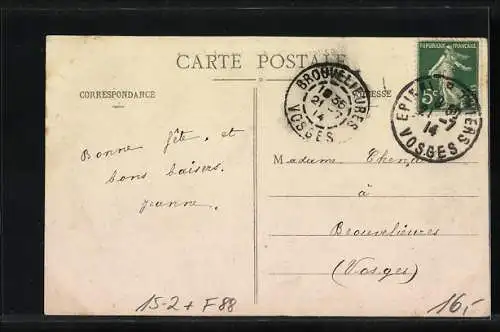 CARTE POSTALE
CORRESPONDANCE
Bonne fête, et
bons baisers.
Jeanne.
BROUVELIEURES
VOSGES
21 -7
14
ADRESSE
RÉPUBLIQUE FRANÇAISE
5c
VOSGES
14
Madame
à
Brouvelieures
(Vosges)
15-2 + F88
16,-